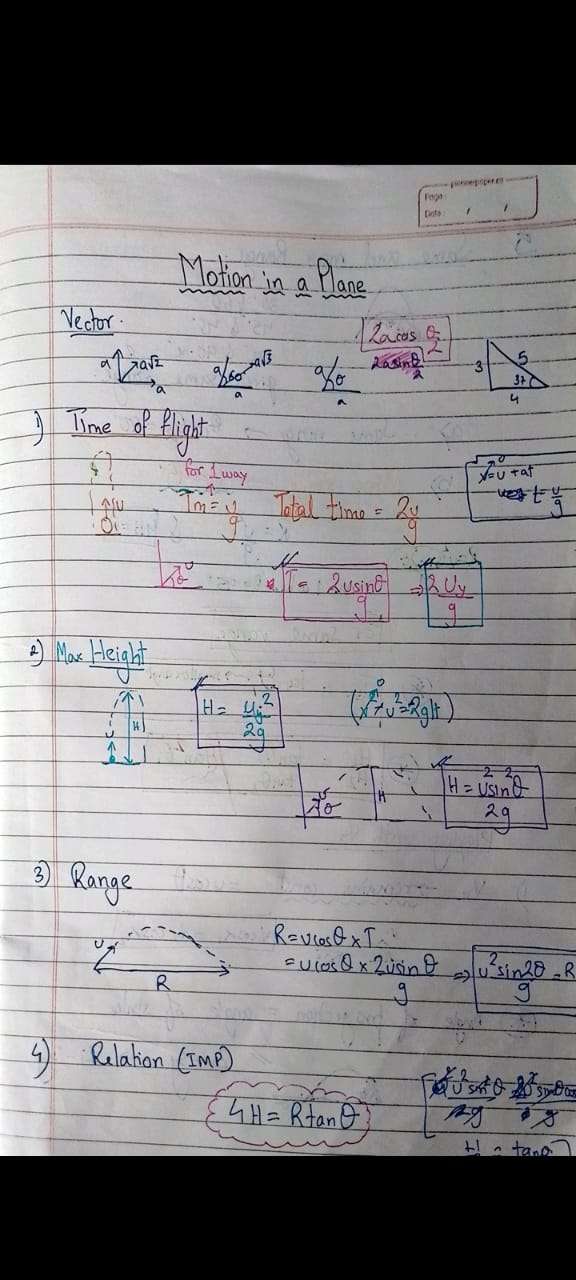 Page
Date
Motion in a Plane
Vector.
2acos θ/2
2asinθ/2
a a√2 a
a 60° a√3 a
a θ a
3 5 37 4
1) Time of flight
for 1 way
Tm = u/g Total time = 2u/g
v = u + at
0
t = u/g
u
u θ
T = 2usinθ/g ⇒ 2Uy/g
2) Max Height
u H
H = uy²/2g
0
(v² - u² = 2gH)
u θ H
H = u²sin²θ/2g
3) Range
u R
R = ucosθ × T
= ucosθ × 2usinθ/g ⇒ u²sin2θ/g = R
4) Relation (IMP)
4H = Rtanθ
u²sin²θ
2g g
H = tanθ